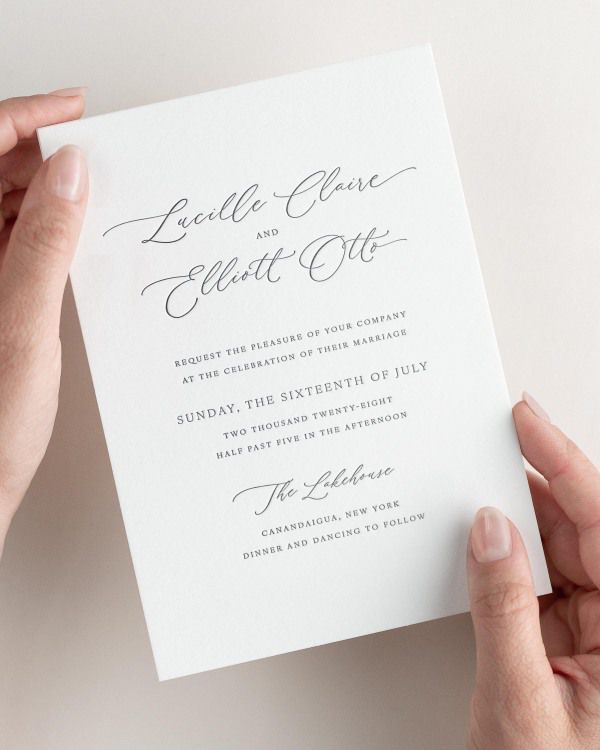 Lucille Claire
AND
Elliott Otto
REQUEST THE PLEASURE OF YOUR COMPANY
AT THE CELEBRATION OF THEIR MARRIAGE
SUNDAY, THE SIXTEENTH OF JULY
TWO THOUSAND TWENTY-EIGHT
HALF PAST FIVE IN THE AFTERNOON
The Lakehouse
CANANDAIGUA, NEW YORK
DINNER AND DANCING TO FOLLOW